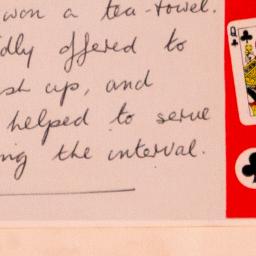 won a tea-towel.
offered to
up, and
helped to serve
the interval.
Q